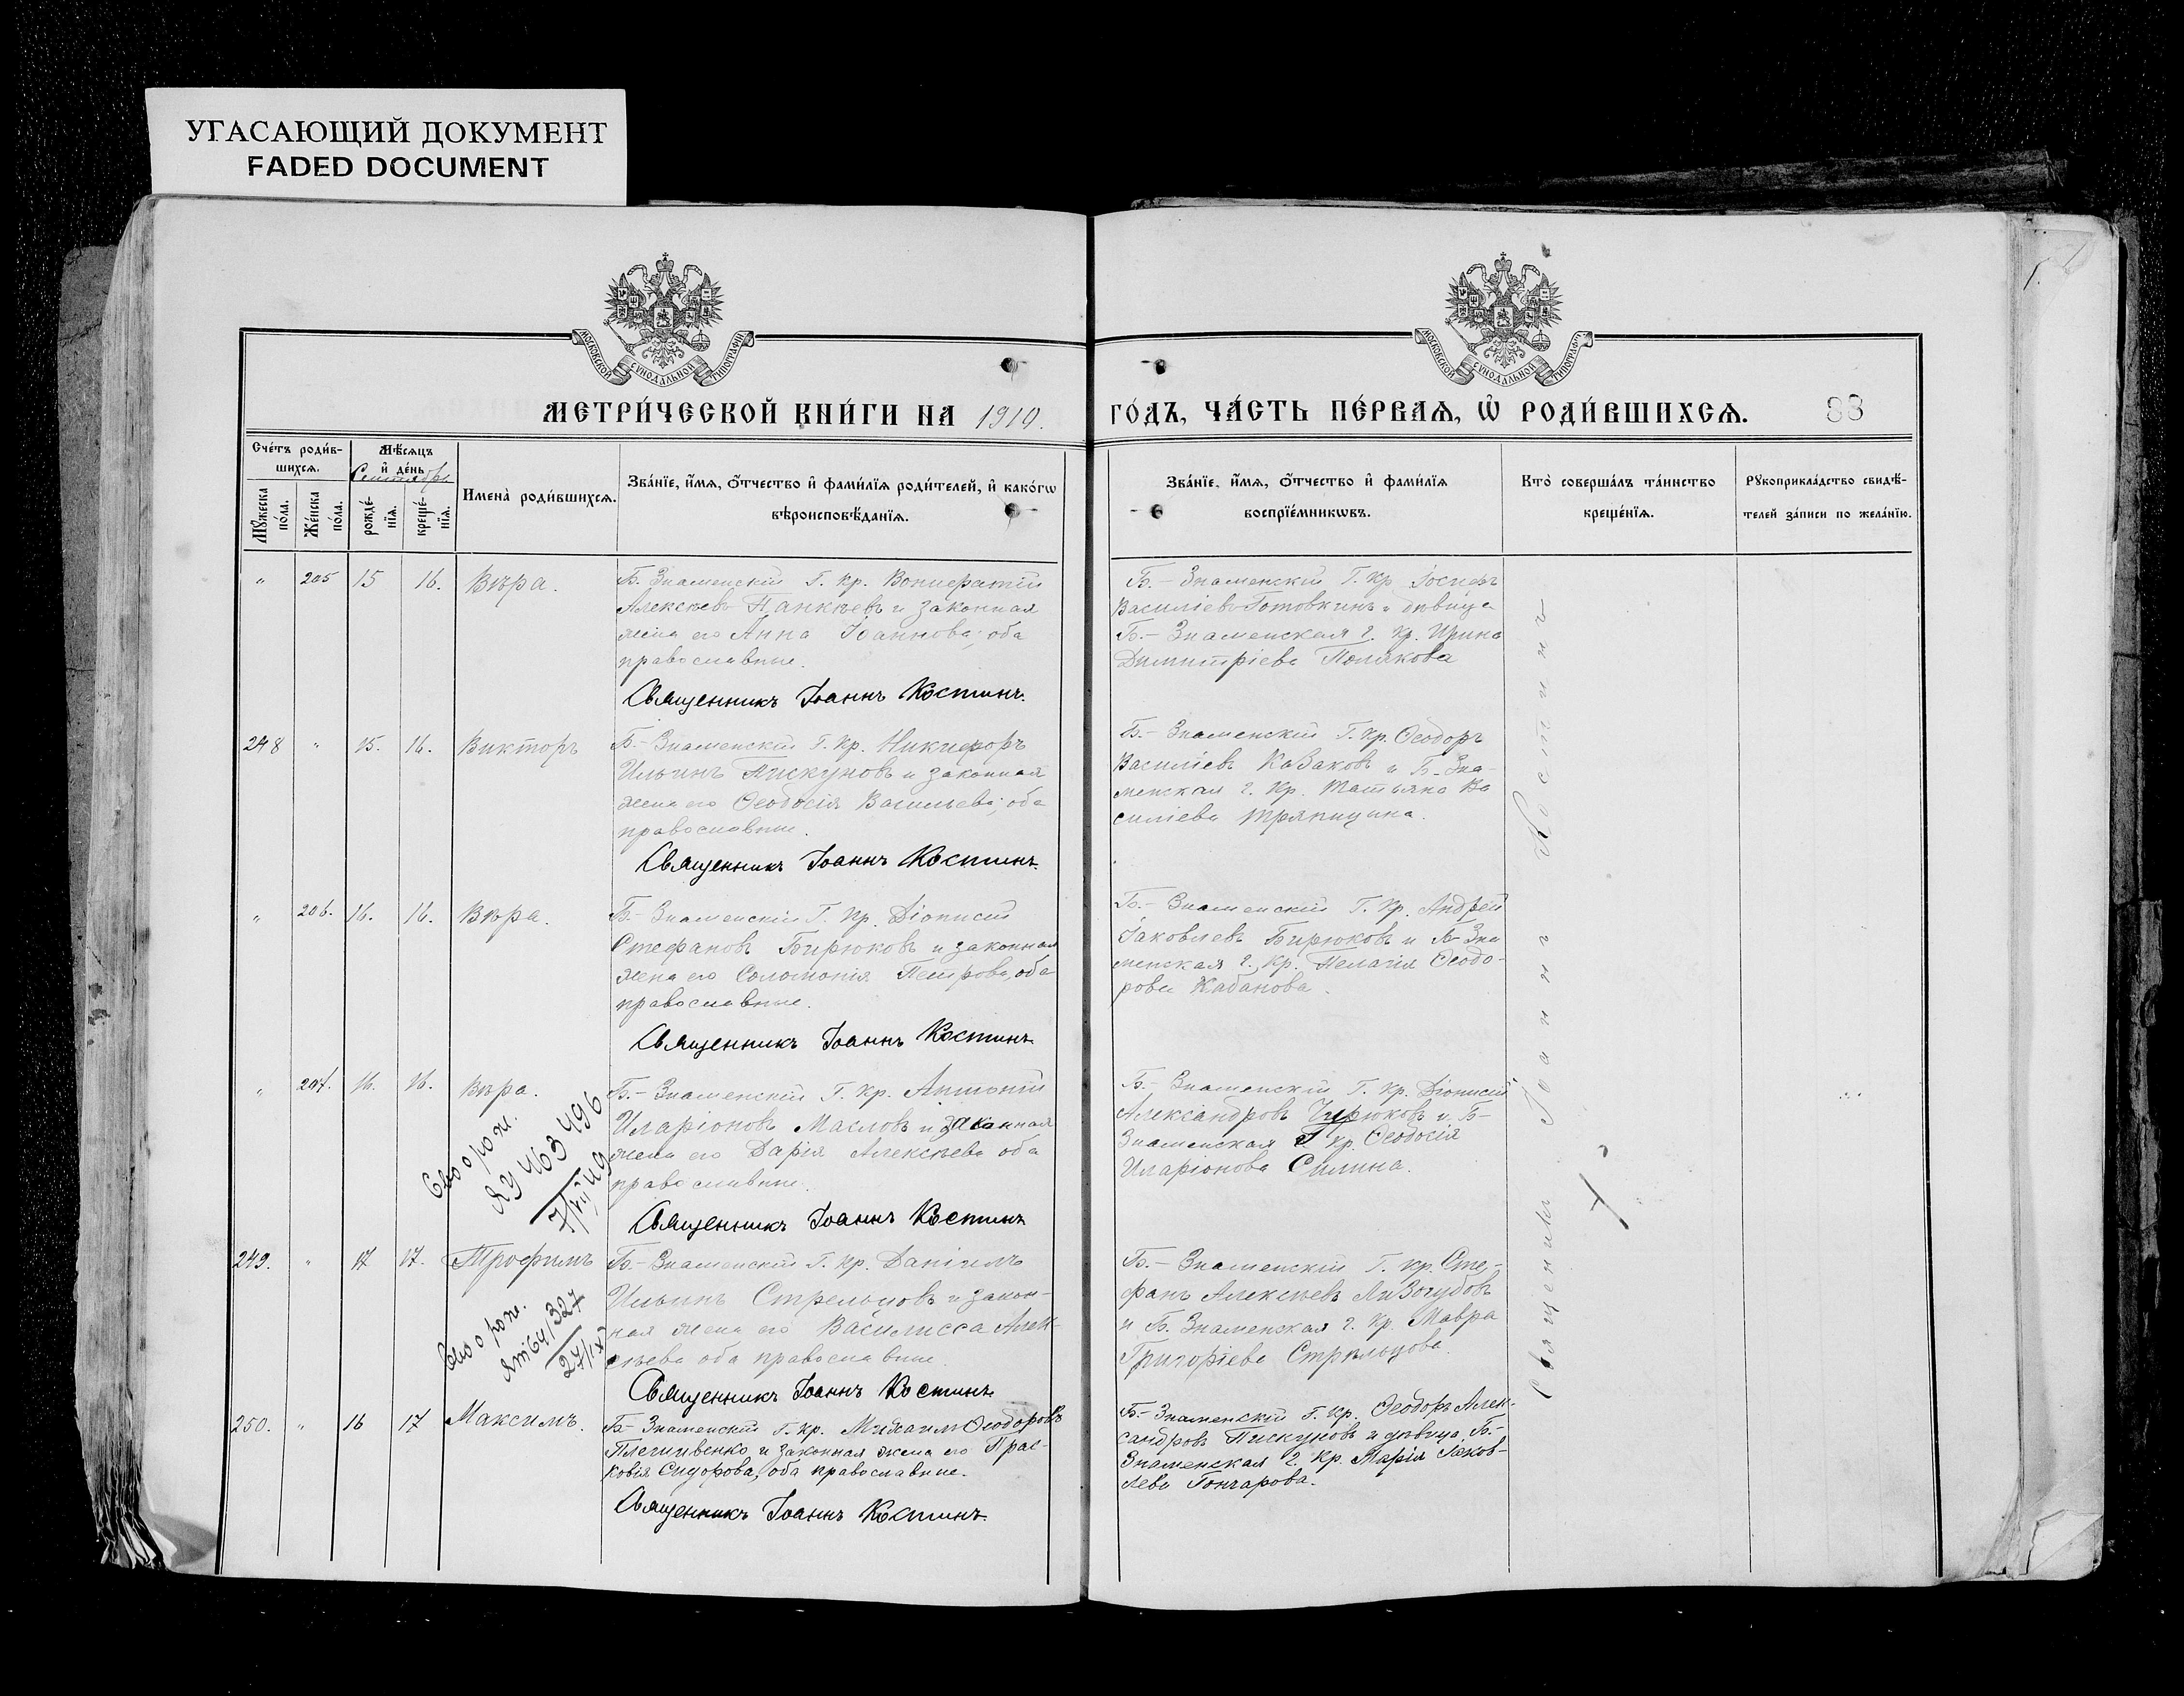 УГАСАЮЩИЙ ДОКУМЕНТ
FADED DOCUMENT
МОСКОВСКОЙ СѴНОДАЛЬНОЙ ТИПОГРАФІИ
МОСКОВСКОЙ СѴНОДАЛЬНОЙ ТИПОГРАФІИ
МЕТРИ́ЧЕСКОЙ КНИ́ГИ НА 1910.
ГО́ДЪ, ЧА́СТЬ ПЕ́РВАЯ, Ѡ҆ РОДИ́ВШИХСЯ. 88
Сче́тъ роди́в-
шихся.
Мѣ́сяцъ
и҆ де́нь
Сентябрь
Мꙋ́жеска
по́ла.
Же́нска
по́ла.
рожде́-
нїя.
креще́-
нїя.
Имена̀ роди́вшихся.
Зва́нїе, и҆́мя, ѻ҆́тчество и҆ фами́лїя роди́телей, и҆ како́гѡ
вѣроисповѣ́данїя.
Зва́нїе, и҆́мя, ѻ҆́тчество и҆ фами́лїя
воспрїе́мникѡвъ.
Кто̀ соверша́лъ та́инство
креще́нїя.
Рꙋкоприкла́дство свидѣ́-
телей за́писи по жела́нїю.
" 205 15 16. Вѣра.
Б. Знаменскій Г. кр. Вонифатій
Алексѣевъ Панкѣевъ и законная
жена его Анна Іоаннова; оба
православные.
Священникъ Іоаннъ Костинъ.
Б.- Знаменскій Г. кр. Іосифъ
Василіевъ Готовкинъ и дѣвица
Б.- Знаменская г. кр. Ирина
Димитріева Полякова
248 " 15. 16. Викторъ
Б.- Знаменскій Г. кр. Никифоръ
Ильинъ Пискуновъ и законная
жена его Ѳеодосія Васильева; оба
православные.
Священникъ Іоаннъ Костинъ.
Б.- Знаменскій Г. кр. Ѳеодоръ
Василіевъ Казаковъ и Б.-Зна-
менская г. кр. Татьяна Ва
силіева Тряпицына.
" 206. 16. 16. Вѣра.
Б.- Знаменскій Г. кр. Діонисій
Стефановъ Бирюковъ и законная
жена его Соломонія Петрова, оба
православные.
Священникъ Іоаннъ Костинъ.
Б.- Знаменскій Г. кр. Андрей
Іаковлевъ Бирюковъ и Б-Зна
менская г. кр. Пелагія Ѳеодо-
рова Кабанова.
" 207. 16. 16. Вѣра.
Б.- Знаменскій Г. кр. Антоній
Иларіоновъ Масловъ и законная
жена его Дарія Алексѣева оба
православные.
Священникъ Іоаннъ Костинъ
Б.- Знаменскій Г. кр. Діонисій
Александровъ Чирюковъ и Б-
Знаменская Г кр. Ѳеодосія
Иларіонова Силина.
о рож.
ЯУ 463496
7/VII 49
249. " 17 17. Трофимъ
Б.- Знаменскій Г. кр. Даніилъ
Ильинъ Стрельцовъ и закон-
ная жена его Василисса Алек-
сѣева оба православные
Священникъ Іоаннъ Костинъ
Б.- Знаменскій Г. кр. Сте-
фанъ Алексѣевъ Лизогубовъ
и Б. Знаменская г. кр. Мавра
Григоріева Стрѣльцова.
о рож.
27/IX
250. " 16 17 Максимъ.
Б- Знаменскій Г. кр. Михаилъ Ѳеодоровъ
и законная жена его Прас-
ковія Сидорова, оба православные.
Священникъ Іоаннъ Костинъ.
Б.- Знаменскій Г. кр. Ѳеодоръ Алек-
сандровъ Пискуновъ и дѣвица Б.-
Знаменская г. кр. Марія Іаков-
лева Гончарова.
Священникъ Іоаннъ Костинъ